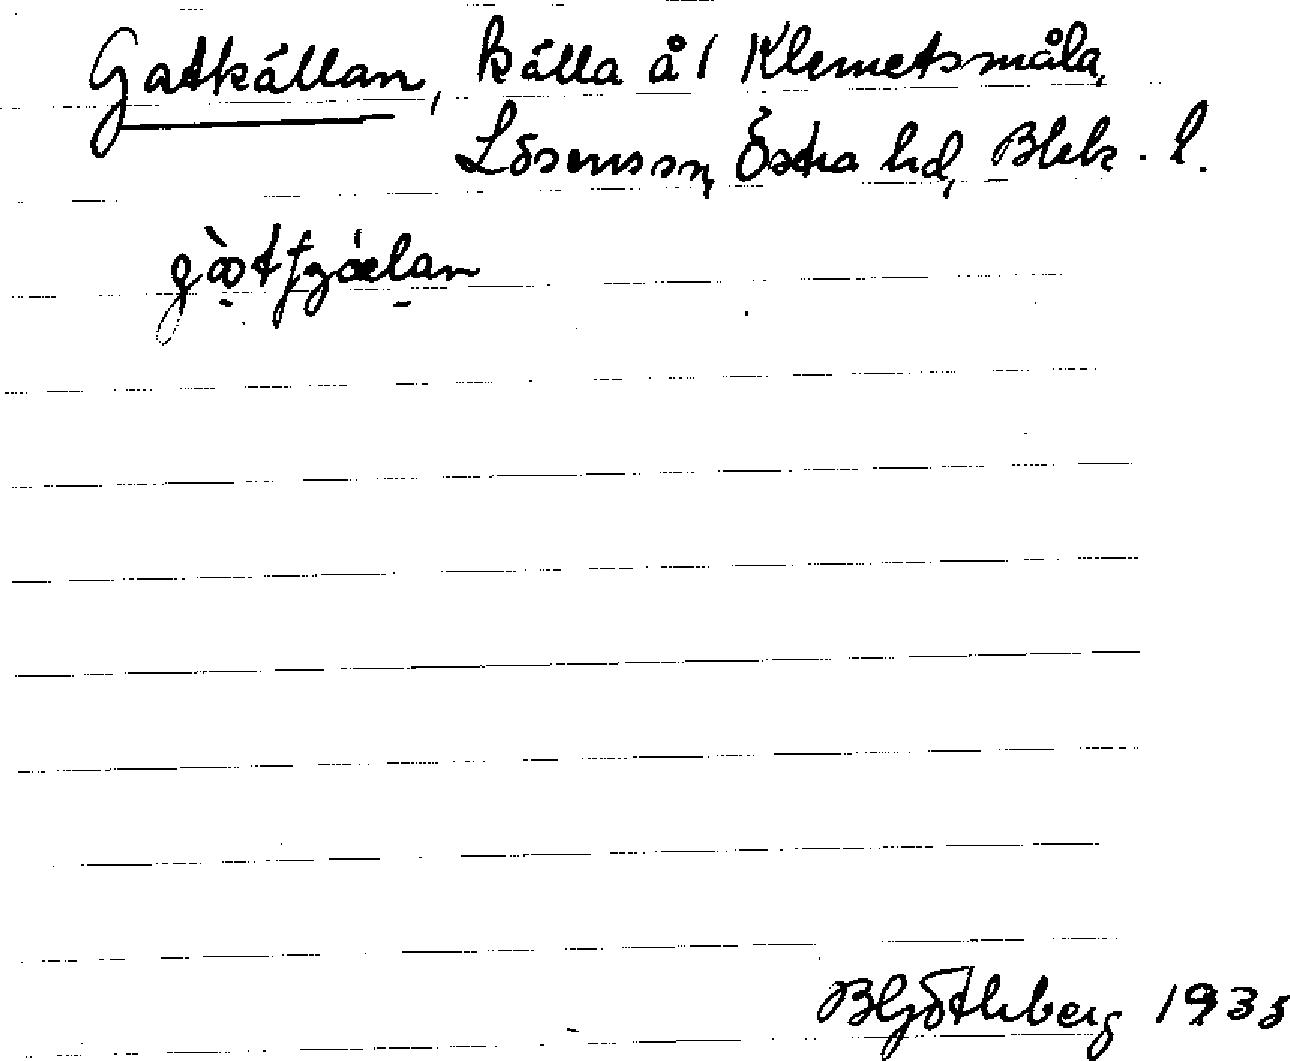 Gatkällan, källa å 1 Klemetsmåla,
Lösenssn, Östra hd, Blek. l.
BGötheberg 1935